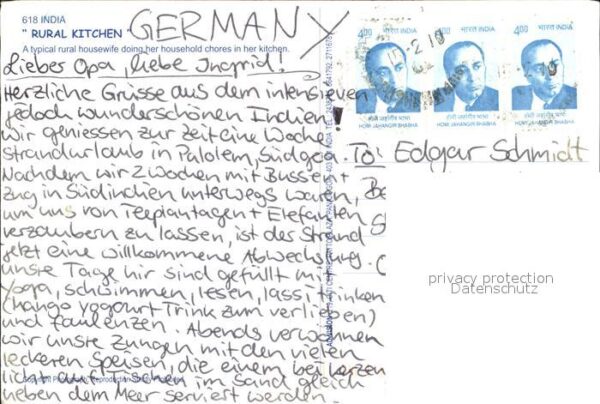 GERMANY
618 INDIA
" RURAL KITCHEN "
A typical rural housewife doing her household chores in her kitchen.
Lieber Opa, liebe Ingrid!
Herzliche Grüsse aus dem intensieven
jedoch wunderschönen Indien!
Wir geniessen zur Zeit eine Woche
strandurlaub in Palolem, Südgoa.
Nachdem wir 2 Wochen mit Bussen +
Zug in Südinchien unterwegs waren,
um uns von Teeplantagen + Elefanten
verzaubern zu lassen, ist der Strand
jetzt eine willkommene Abwechslung.
unsre Tage hir sind gefüllt mit
Yoga, schwimmen, lesen, lassi trinken
(Mango yogourt Trink zum verlieben)
und faulenzen. Abends verwöhnen
wir unsre Zungen mit den vielen
leckeren Speisen die einem bei kerzen
licht auf Tischen im Sand gleich
neben dem Meer serviert werden.
To Edgar Schmidt
4.00 भारत INDIA
होमी जहांगीर भाभा
HOMI JAHANGIR BHABHA
4.00 भारत INDIA
होमी जहांगीर भाभा
HOMI JAHANGIR BHABHA
4.00 भारत INDIA
होमी जहांगीर भाभा
HOMI JAHANGIR BHABHA
privacy protection
Datenschutz